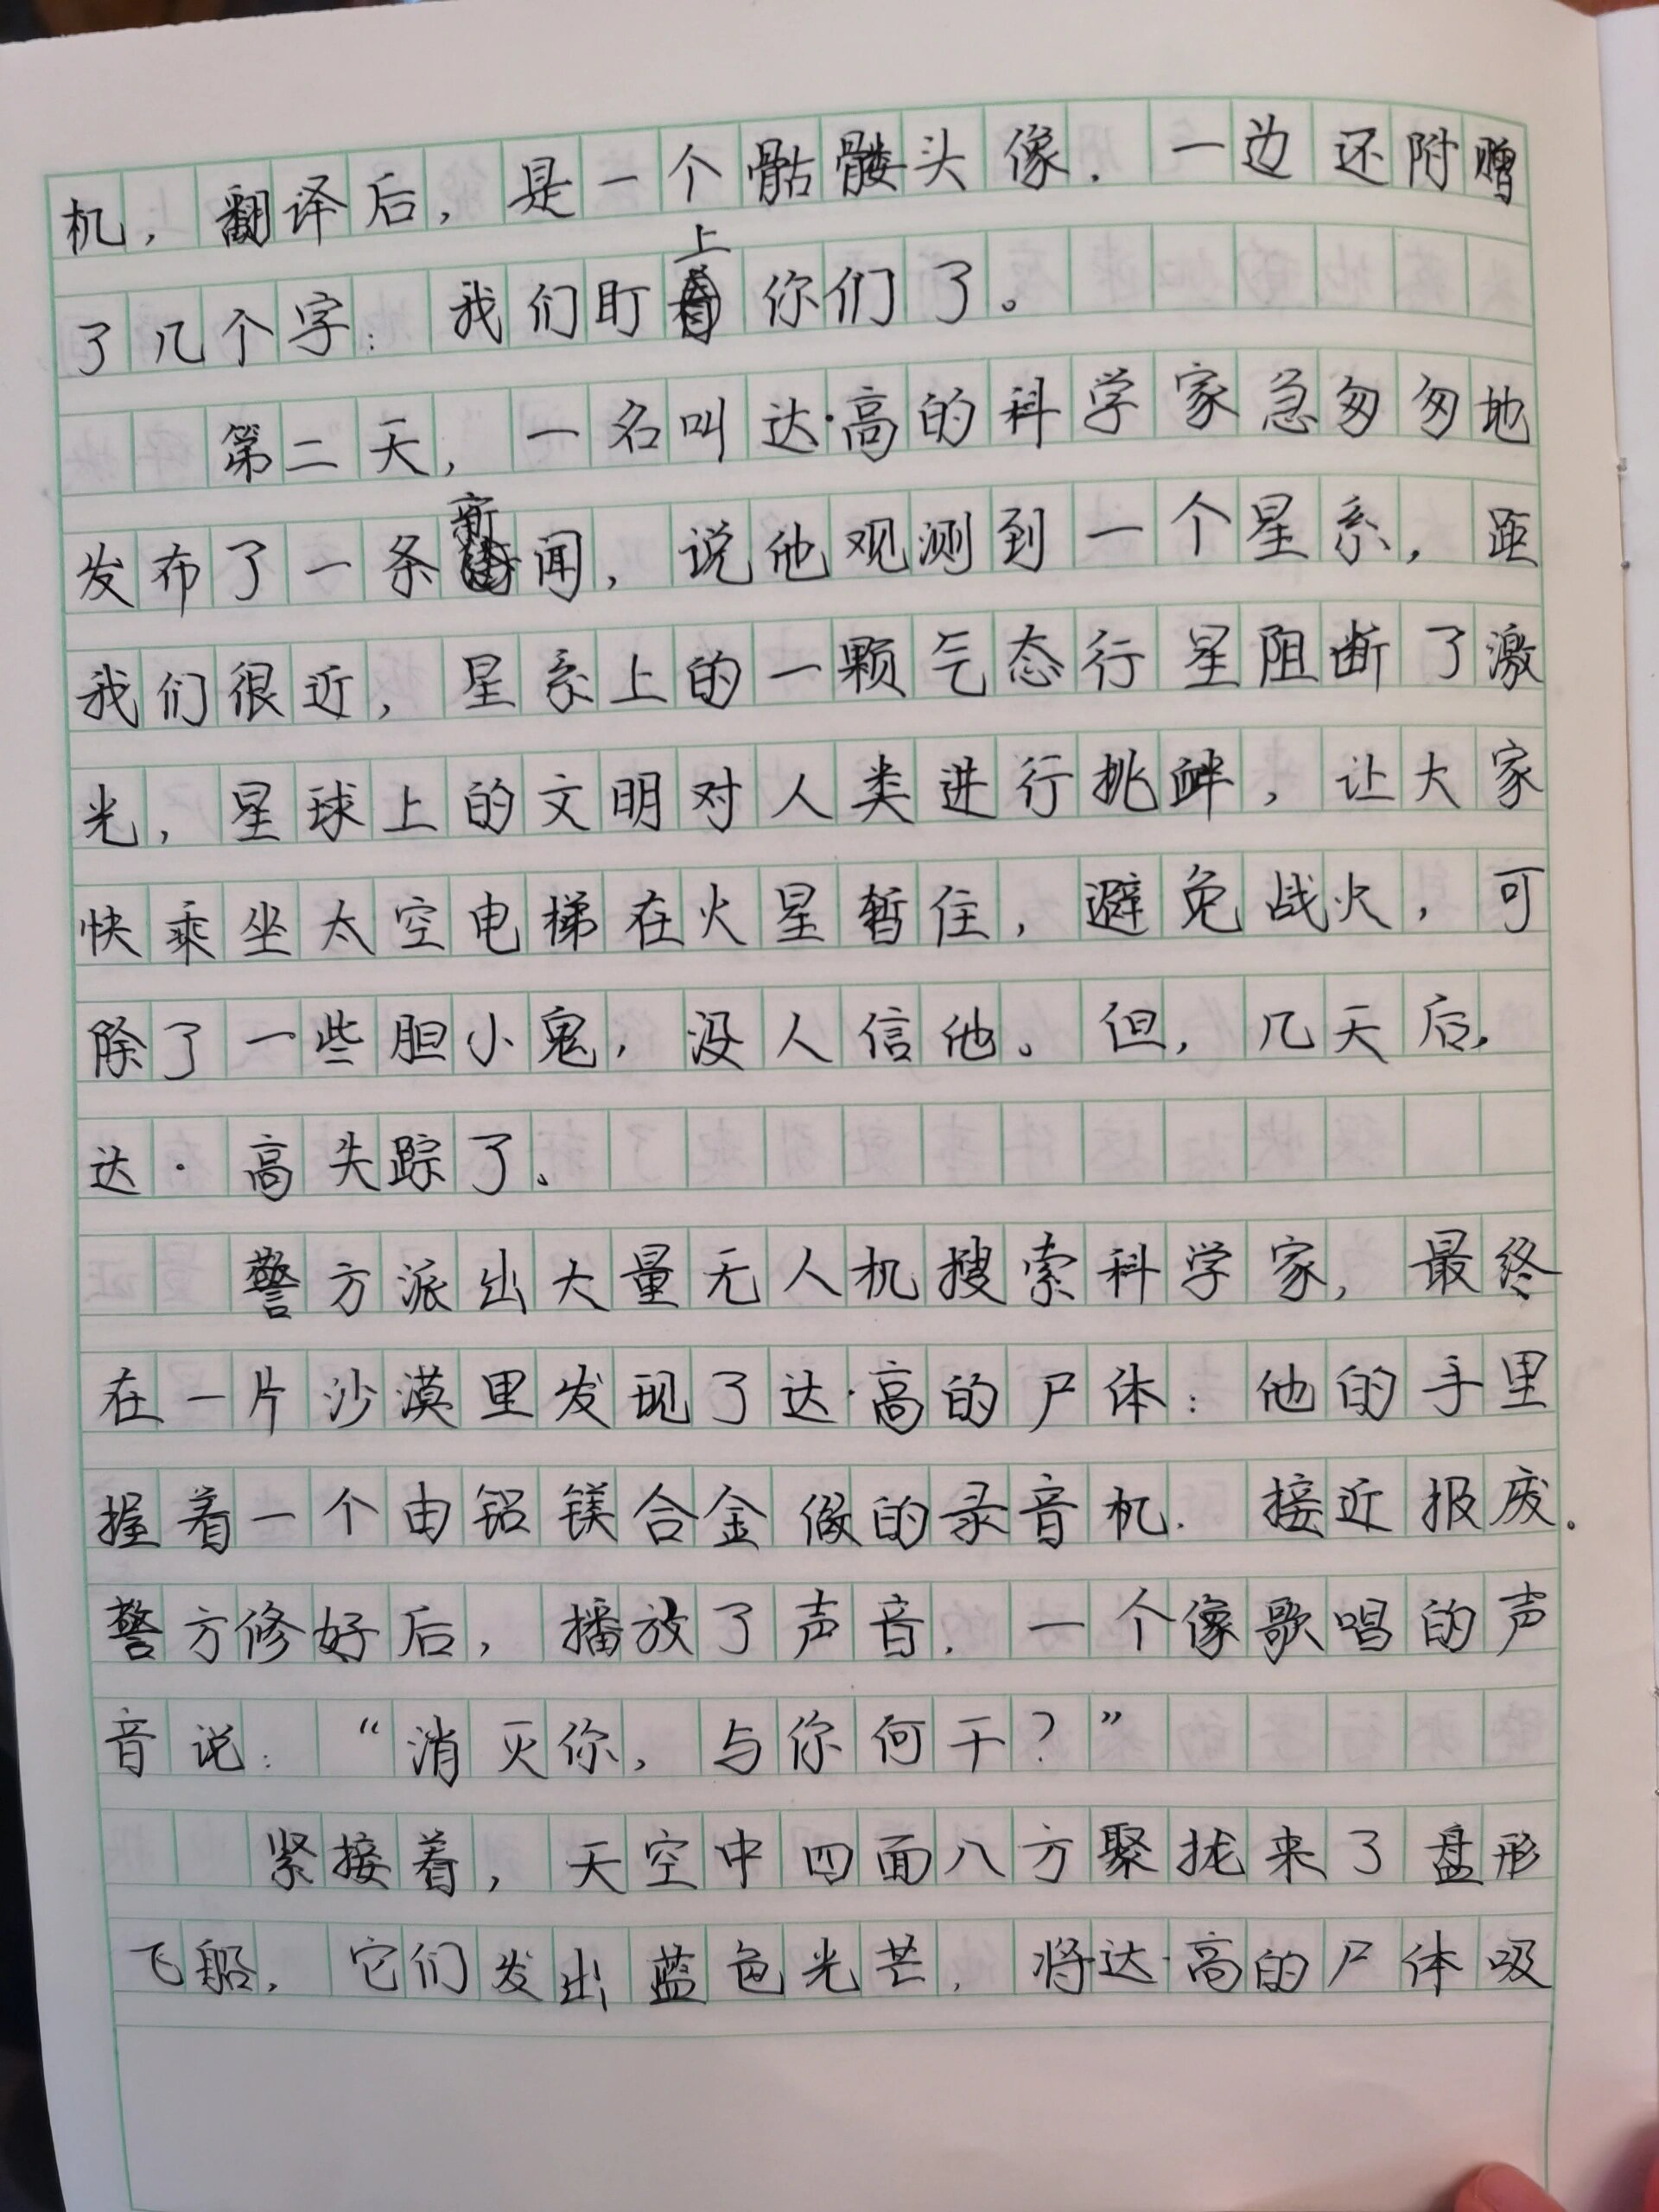 机，翻译后，是一个骷髅头像．一边还附赠
了几个字：我们盯上你们了。
第二天，一名叫达·高的科学家急匆匆地
发布了一条新闻，说他观测到一个星系，距
我们很近，星系上的一颗气态行星阻断了激
光，星球上的文明对人类进行挑衅，让大家
快乘坐太空电梯在火星暂住，避免战火，可
除了一些胆小鬼，没人信他。但，几天后，
达·高失踪了。
警方派出大量无人机搜索科学家，最终
在一片沙漠里发现了达·高的尸体：他的手里
握着一个由铝镁合金做的录音机．接近报废．
警方修好后，播放了声音．一个像歌唱的声
音说：“消灭你，与你何干？”
紧接着，天空中四面八方聚拢来了盘形
飞船．它们发出蓝色光芒．将达·高的尸体吸